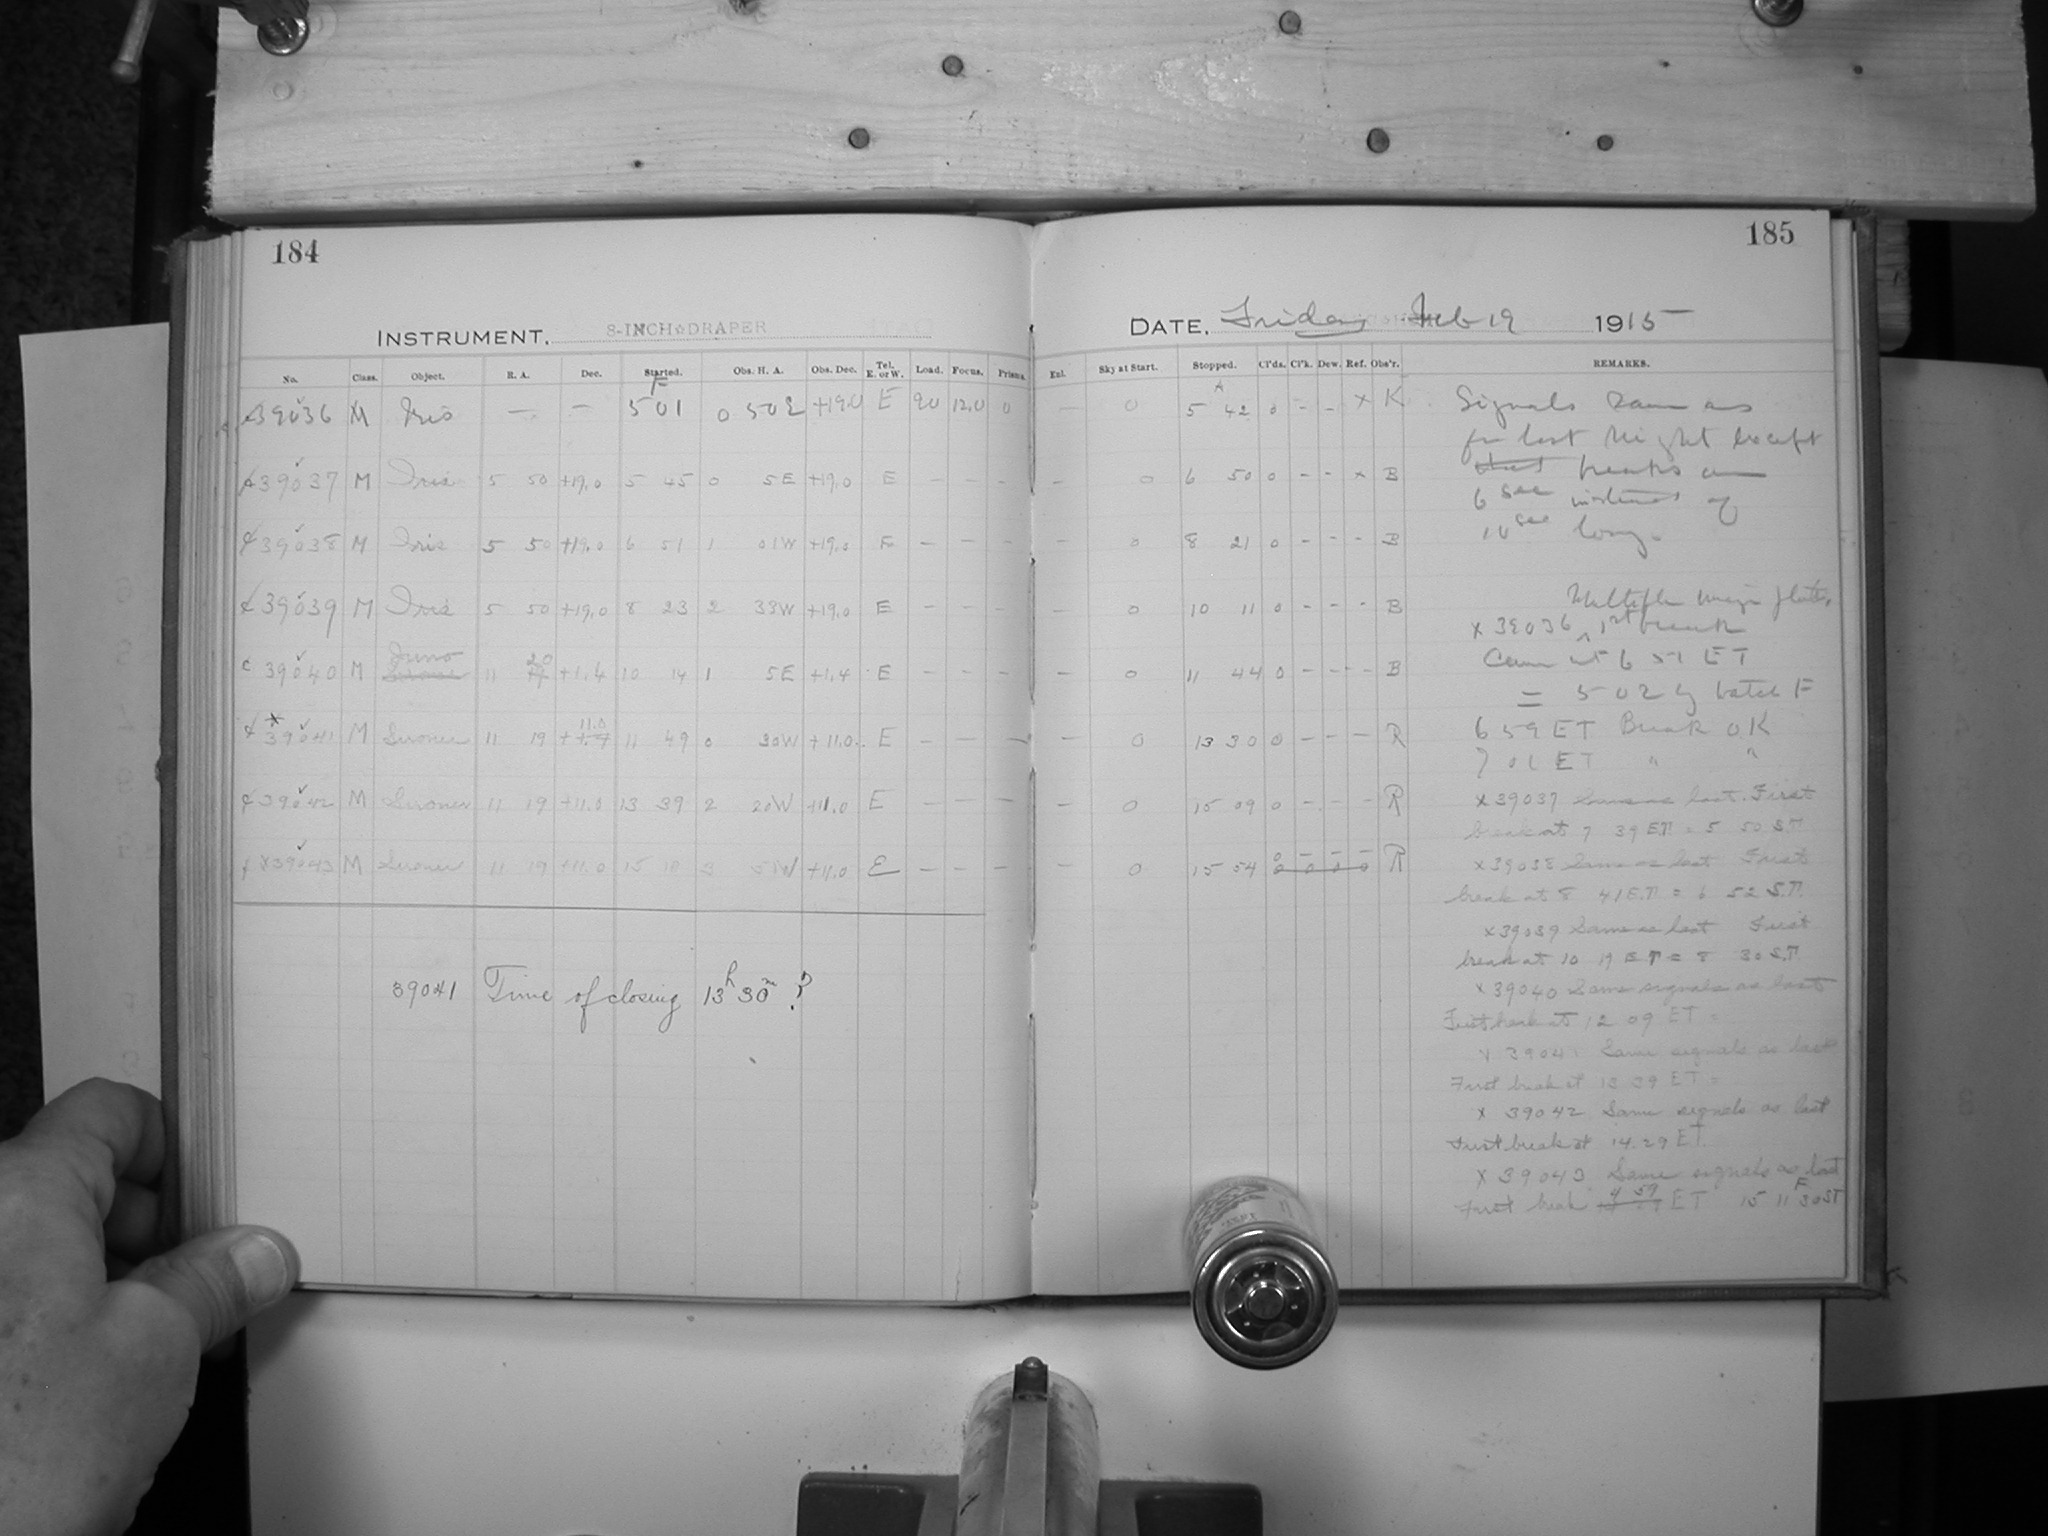 184
INSTRUMENT. 8-INCH DRAPER
No. Class. Object. R. A. Dec. Started. Obs. H. A. Obs. Dec. Tel. E. or W. Load. Focus. Prisms.
39036 M Iris — — F 5 01 0 50E +19.0 E 90 12.0 0
39037 M Iris 5 50 +19.0 5 45 0 5E +19.0 E — — —
39038 M Iris 5 50 +19.0 6 51 1 01W +19.0 E — — —
39039 M Iris 5 50 +19.0 8 23 2 33W +19.0 E — — —
c 39040 M Juno 11 20 +1.4 10 14 1 5E +1.4 E — — —
39041 M 11 19 + 11.0 11 49 0 30W +11.0 E — — —
39042 M 11 19 +11.0 13 39 2 20W +11.0 E — — —
x39043 M 11 19 +11.0 15 10 3 +11.0 E — — —
39041 Time of closing 13h 30m ?
185
DATE. Friday Feb 19 1915
Exl. Sky at Start. Stopped. Cl'ds. Cl'k. Dew. Ref. Obs'r. REMARKS.
— 0 5 42 0 - - x K
— 0 6 50 0 - - x B
— 0 8 21 0 - - - B
— 0 10 11 0 - - - B
— 0 11 44 0 - - - B
— 0 13 30 0 - - - R
— 0 15 09 0 - - - R
— 0 15 54 0 - - - R
Signals same as
for last night except
that breaks are
6 sec instead of
10 sec long.
Multiple image plate.
x 39036 1st break
came at 6 51 ET
= 5 02 by batch F
6 59 ET Break OK
7 01 ET " "
x 39037 Same as last. First
break at 7 39 E.T. = 5 50 S.T.
x 39038 Same as last First
break at 8 41 E.T. = 6 52 S.T.
x 39039 Same as last First
break at 10 19 E T = 8 30 S.T.
x 39040 Same signals as last
First break at 12 09 ET =
x 39041 Same signals as last
First break at 13 39 ET =
x 39042 Same signals as last
First break at 14.29 ET.
x 39043 Same signals as last
First break 4 59 ET 15 11 F 30 ST